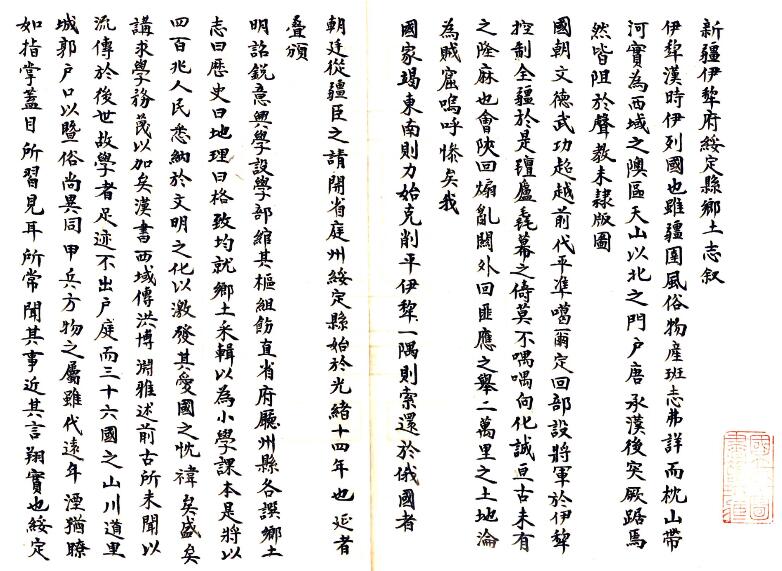 新疆伊犂府綏定縣鄉土志叙
伊犂漢時伊列國也雖疆圉風俗物產班志弗詳而枕山帶
河實為西域之隩區天山以北之門户唐承漢後突厥踞焉
然皆阻於聲教未隸版圖
國朝文德武功超越前代平準噶爾定回部設將軍於伊犂
控制全疆於是氊廬毳幕之倚莫不喁喁向化誠亘古未有
之隆庥也會陝回煽亂關外回匪應之舉二萬里之土地淪
為賊窟嗚呼慘矣我
國家竭東南則力始克削平伊犂一隅則索還於俄國者
朝廷從疆臣之請開省庭州綏定縣始於光緒十四年也延者
疊頒
明詔銳意興學設學部綰其樞組飭直省府廳州縣各譔鄉土
志曰歷史曰地理曰格致均就鄉土釆輯以為小學課本是將以
四百兆人民悉納於文明之化以激發其愛國之忱禕矣盛矣
講求學務蔑以加矣漢書西域傳洪博淵雅述前古所未聞以
流傳於後世故學者足迹不出户庭而三十六國之山川道里
城郭户口以暨俗尚異同甲兵方物之屬雖代遠年湮猶瞭
如指掌蓋目所習見耳所常聞其事近其言翔實也綏定